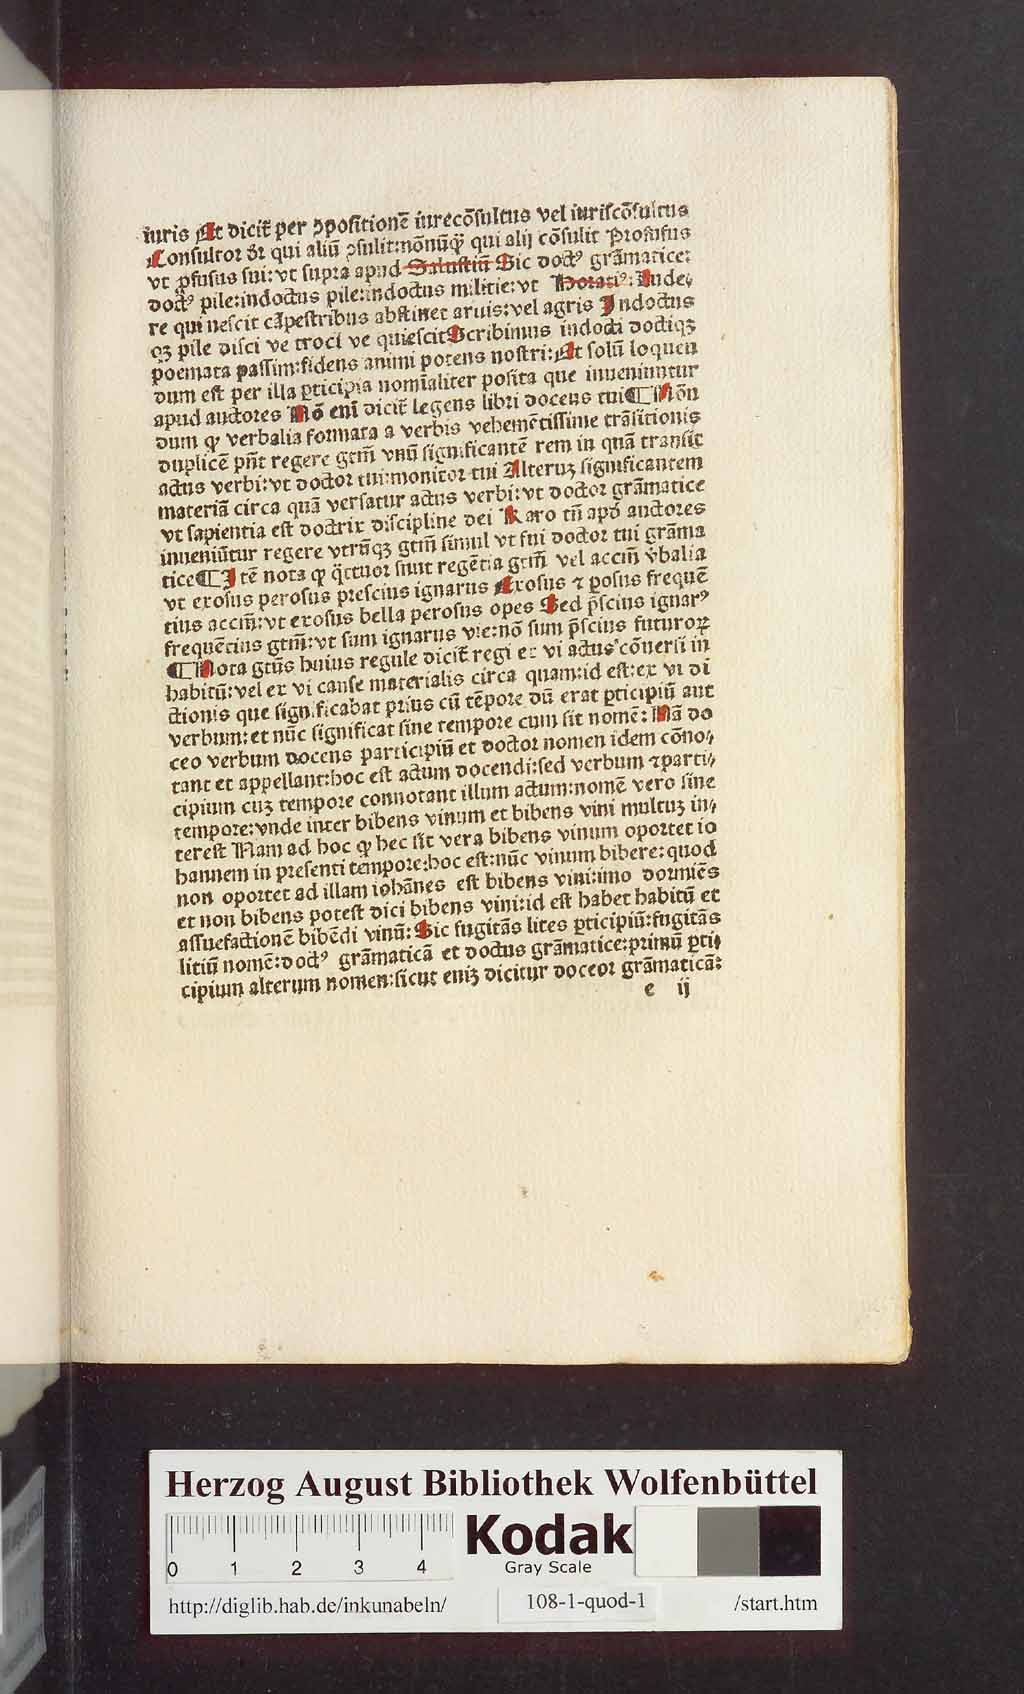 iuris Et dicit̃ per ꝯpositionē iurecōsultus vel iuriscōsultus
Consultor dr̄ qui aliū ꝯsulit: nōnūꝙ qui alij cōsulit Profusus
vt ꝓfusus sui: vt supra apud Salustiū Sic doctꝰ grāmatice:
doctꝰ pile: indoctus pile: indoctus militie: vt Horatiꝰ: Lude⸗
re qui nescit cāpestribus abstinet aruis: vel agris Indoctus
qꝫ pile disci ve troci ve quiescit Scribimus indocti doctiqꝫ
poemata passim: fidens animi potens nostri: Et solū loquen
dum est per illa ꝑticipia nomīaliter posita que inueniuntur
apud auctores Nō enī dicit̃ legens libri docens tui ¶ Nōn
dum ꝙ verbalia formata a verbis vehemētissime trāsitionis
duplicē pñt regere gtm̄ vnū significantē rem in quā transit
actus verbi: vt doctor tui: monitor tui Alteruꝫ significantem
materiā circa quā versatur actus verbi: vt doctor grāmatice
vt sapientia est doctrix discipline dei Raro tñ apd̄ auctores
inueniūtur regere vtrūqꝫ gtm̄ simul vt sui doctor tui grāma
tice ¶ Itē nota ꝙ q̈ttuor sunt regētia gtm̄ vel accm̄ v̄balia
vt exosus perosus prescius ignarus Exosus ⁊ ꝑosus frequē
tius accm̄: vt exosus bella perosus opes Sed p̄scius ignarꝰ
frequētius gtm̄: vt sum ignarus vie: nō sum p̄scius futuroꝝ
¶ Nota gtūs huius regule dicit̃ regi ex vi actus cōuersi in
habitū: vel ex vi cause materialis circa quam: id est: ex vi di
ctionis que significabat prius cū tēpore dū erat ꝑticipiū aut
verbum: et nūc significat sine tempore cum sit nomē: Nā do
ceo verbum docens participiū et doctor nomen idem cōno⸗
tant et appellant: hoc est actum docendi: sed verbum ⁊ parti⸗
cipium cuꝫ tempore connotant illum actum: nomē vero sine
tempore: vnde inter bibens vinum et bibens vini multuꝫ in⸗
terest Nam ad hoc ꝙ hec sit vera bibens vinum oportet io
hannem in presenti tempore: hoc est: nūc vinum bibere: quod
non oportet ad illam iohānes est bibens vini: imo dormiēs
et non bibens potest dici bibens vini: id est habet habitū et
assuefactionē bibēdi vinū: Sic fugitās lites ꝑticipiū: fugitās
litiū nomē: doctꝰ grāmaticā et doctus grāmatice: primū ꝑti⸗
cipium alterum nomen: sicut eniꝫ dicitur doceor grāmaticā:
e ij
Herzog August Bibliothek Wolfenbüttel
0 1 2 3 4
Kodak
Gray Scale
http://diglib.hab.de/inkunabeln/ 108-1-quod-1 /start.htm